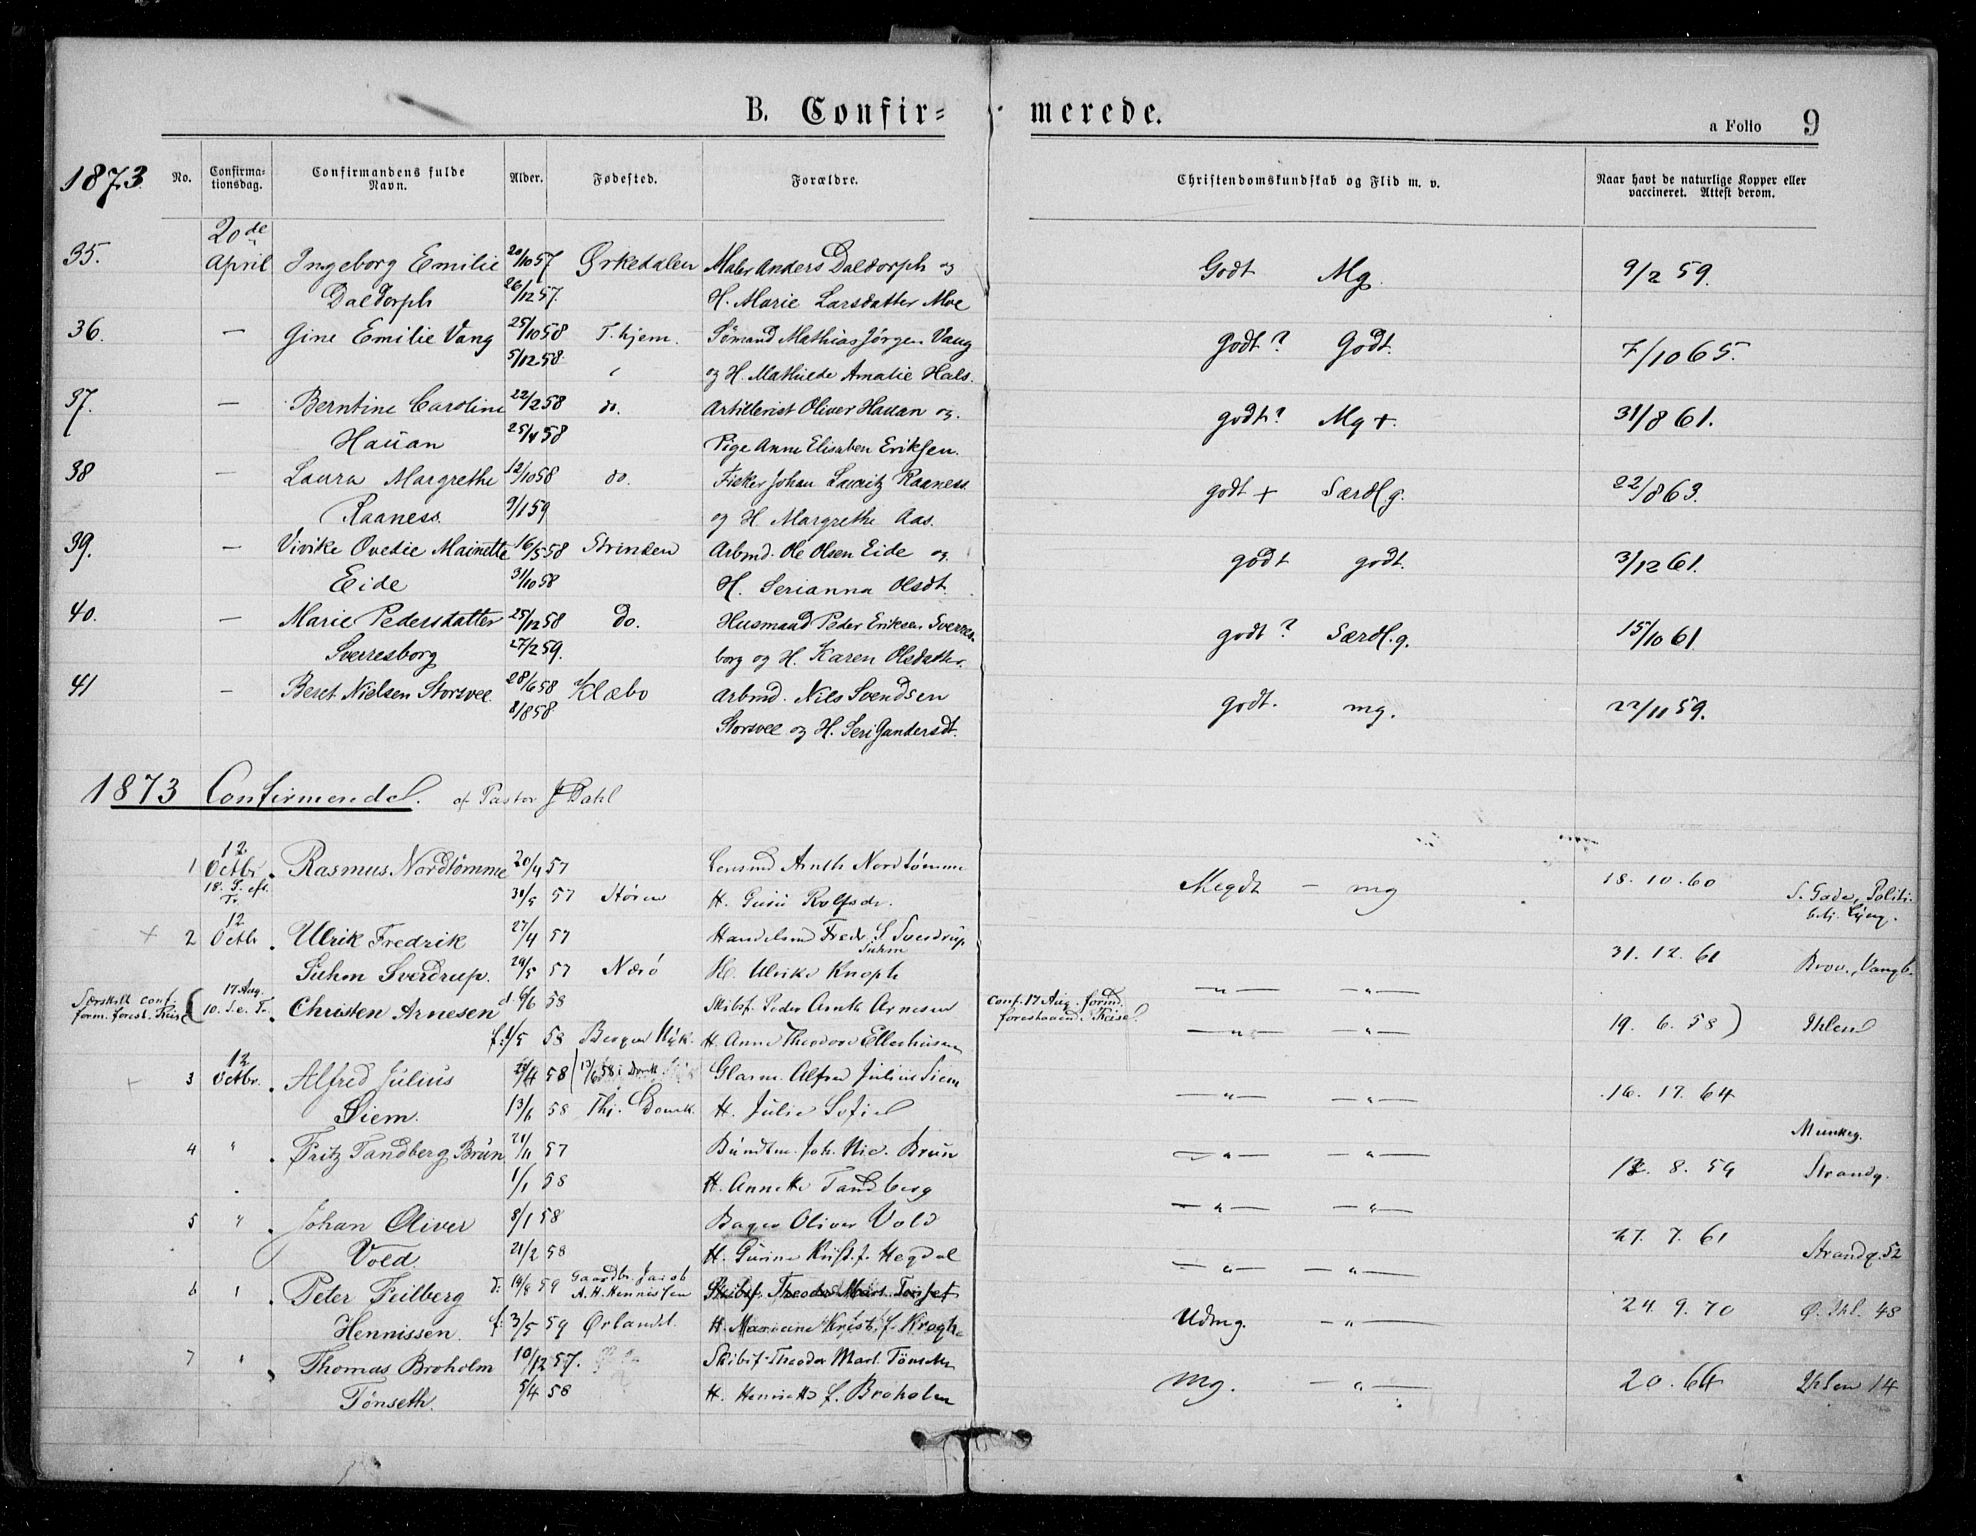 B. Confir= merede.
a Folio 9
1873 No. Confirma-tionsdag. Confirmandens fulde Navn. Alder. Fødested. Forældre. Christendomskundskab og Flid m. v. Naar havt de naturlige Kopper eller vaccineret. Attest derom.
20de
35. April Ingeborg Emilie 20/10 57 Ørkedalen Maler Anders Daldorph og Godt Mg. 9/2 59.
Daldorph 26/12 57. H. Marie Larsdatter Moe
36. — Gine Emilie Vang 25/10 58 T.hjem. Sömand Mathias Jørgen Vang godt? Godt. 7/10 65.
5/12 58. og H. Mathilde Amalie Hals.
37. — Berntine Caroline 22/2 58 do. Artillerist Oliver Hauan og godt? Mg +. 31/8 61.
Hauan 25/4 58 Pige Anne Elisaben Eriksen.
38 — Laura Margrethe 12/10 58 do. Fisker Johan Lauritz Raaness godt + Særdl.g. 22/8 63.
Raaness. 9/1 59 og H. Margrethe Aas.
39. — Vivike Ovedie Mainette 16/5 58 Strinden Arbmd. Ole Olsen Eide og godt godt. 3/12 61.
Eide 31/10 58 H. Serianna Olsdt.
40. — Marie Pedersdatter 25/12 58 do. Husmand Peder Eriksen Sverres- godt? Særdl.g. 15/10 61.
Sverresborg 27/2 59. borg og H. Karen Olsdatter.
41 — Beret Nielsen Storsvee. 28/6 58 Klæbo Arbmd. Nils Svendsen godt. mg. 22/11 59.
8/8 58 Storsvee og H. Seri Gundersdt.
1873 Confirmerede. af Pastor J Dahl
12
1 Octbr. Rasmus Nordtømme 20/4 57 Lensmd Arnth Nordtømme Megdt — mg 18.10.60
18. S. eft. Tr. 31/5 57 Støren H. Guru Rolfsdr. S. Gade, Politi-
12
+ 2 Octbr. Ulrik Fredrik 27/4 57 Handelsmd Fredr. S. Sverdrup 31.12.61
Suhm Sverdrup. 24/5 57 Nærø H. Ulrike Knoph —"— —"—
Særskilt conf. 17 Aug.
10. S.e. Tr. Christen Arnesen d. 6/6 58 Skibsf. Peder Arnth Arnesen Conf. 17 Aug. formd. forestaaende Reise. —"— —"— 19.6.58) Ihlen
form. forest. Reise
f. 1/5 58 H. Anne Theodore Ellerhusen
12
+ 3 Octbr. Alfred Julius 58 Glarm. Alfred Julius Siem —"— —"— 16.17.64
Siem. 13/6 58 H. Julie Sofie
Munkeg.
4 " Fritz Tandberg Brun 21/11 57 Bundtm. Joh. Nic. Brun —"— —"— 12.8.59 Strandg.
1/1 58 H. Annette Tandberg
5 " Johan Oliver 8/1 58 Bager Oliver Vold —"— —"— 27.7.61
Vold. 21/2 58 H. Gurine Krist. f. Hegdal Strandg. 52
6 " Peter Feilberg d. 14/8 59 Gaardbr. Jacob A.H. Hennissen Skibsf. Theodor Mart. Tønset —"— —"— 24.9.70 Ø. Ihl. 48
Hennissen. f. 3/5 59 Ørlandt. H. Mariane Krist. f. Krogh Udmg. —"—
7 " Thomas Broholm 10/12 57. Skibsf. Theodor Mart. Tønseth mg. —"— 20.64 Ihlen 14
Tønseth. 5/4 58 H. Henriette f. Broholm